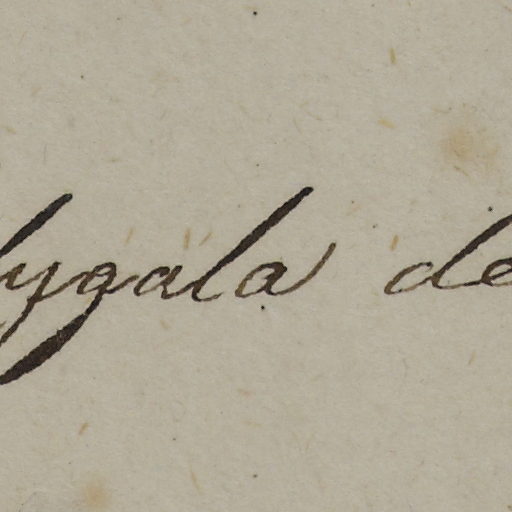 lygala de